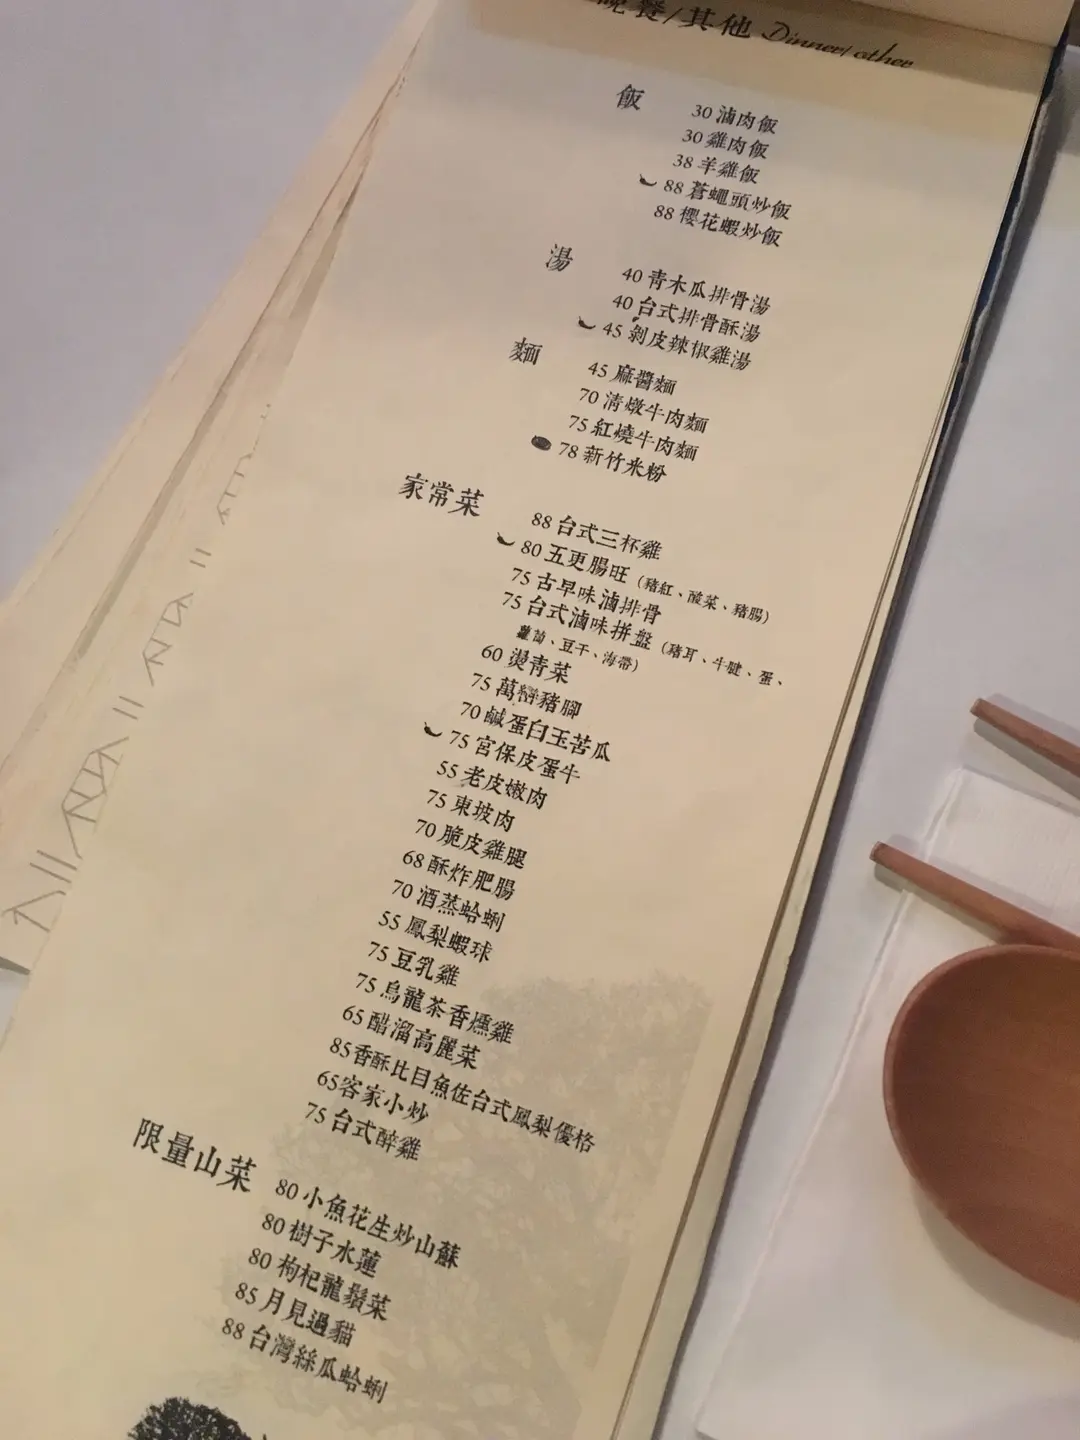 晚餐/其他 Dinner/other
飯
30 滷肉飯
30 雞肉飯
38 羊雞飯
88 蒼蠅頭炒飯
88 櫻花蝦炒飯
湯
40 青木瓜排骨湯
40 台式排骨酥湯
45 剝皮辣椒雞湯
麵
45 麻醬麵
70 清燉牛肉麵
75 紅燒牛肉麵
78 新竹米粉
家常菜
88 台式三杯雞
80 五更腸旺（豬紅、酸菜、豬腸）
75 古早味滷排骨
75 台式滷味拼盤（豬耳、牛腱、蛋、
蘿蔔、豆干、海帶）
60 燙青菜
75 萬巒豬腳
70 鹹蛋白玉苦瓜
75 宮保皮蛋牛
55 老皮嫩肉
75 東坡肉
70 脆皮雞腿
68 酥炸肥腸
70 酒蒸蛤蜊
55 鳳梨蝦球
75 豆乳雞
75 烏龍茶香燻雞
65 醋溜高麗菜
85 香酥比目魚佐台式鳳梨優格
65 客家小炒
75 台式醉雞
限量山菜
80 小魚花生炒山蘇
80 樹子水蓮
80 枸杞龍鬚菜
85 月見過貓
88 台灣絲瓜蛤蜊